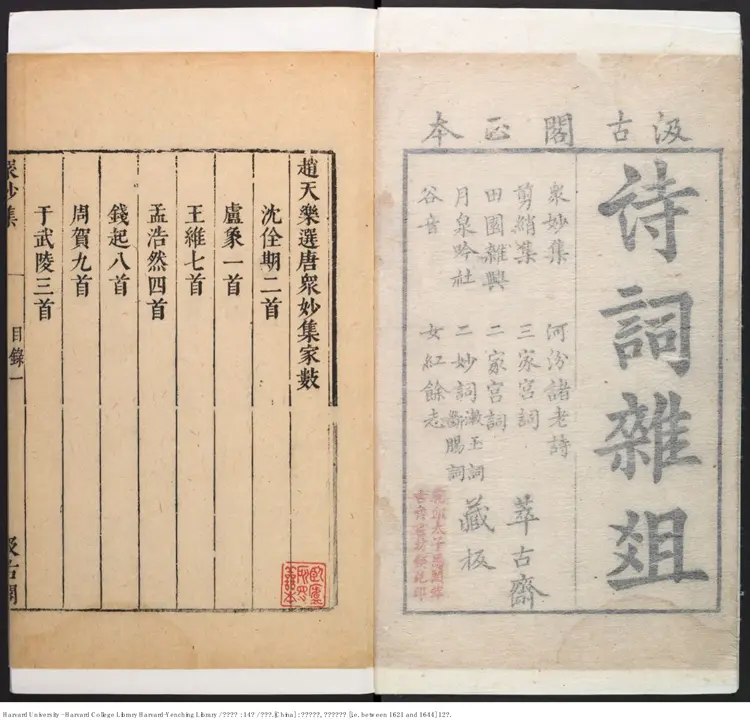 汲古閣正本
詩詞雜爼
衆妙集 河汾諸老詩
剪綃集 三家宮詞
田園雜興 二家宮詞
月泉吟社 二妙詞 漱玉詞 斷腸詞
谷音 女紅餘志
萃古齋
藏板
趙天樂選唐衆妙集家數
沈佺期二首
盧象一首
王維七首
孟浩然四首
錢起八首
周賀九首
于武陵三首
衆妙集 目錄一 汲古閣
Harvard University - Harvard College Library Harvard-Yenching Library / ???? : 14? / ???. [China] : ?????, ?????? [i.e. between 1621 and 1644] 12?.